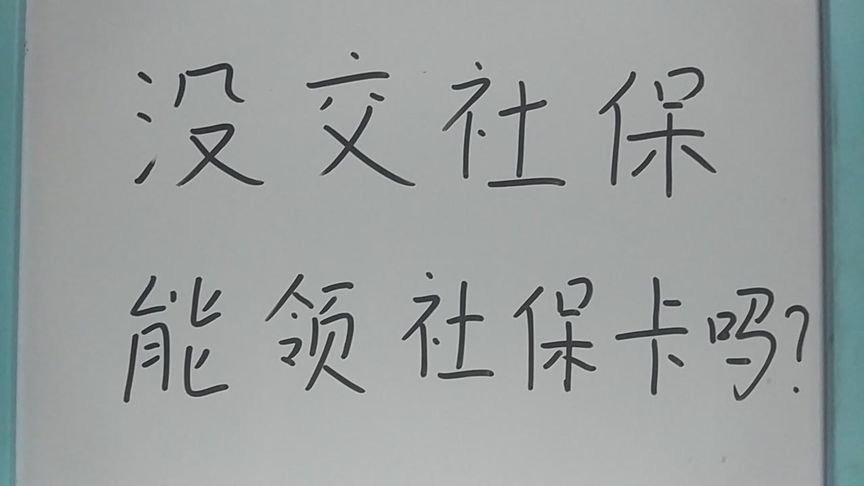 没交社保
能领社保卡吗?